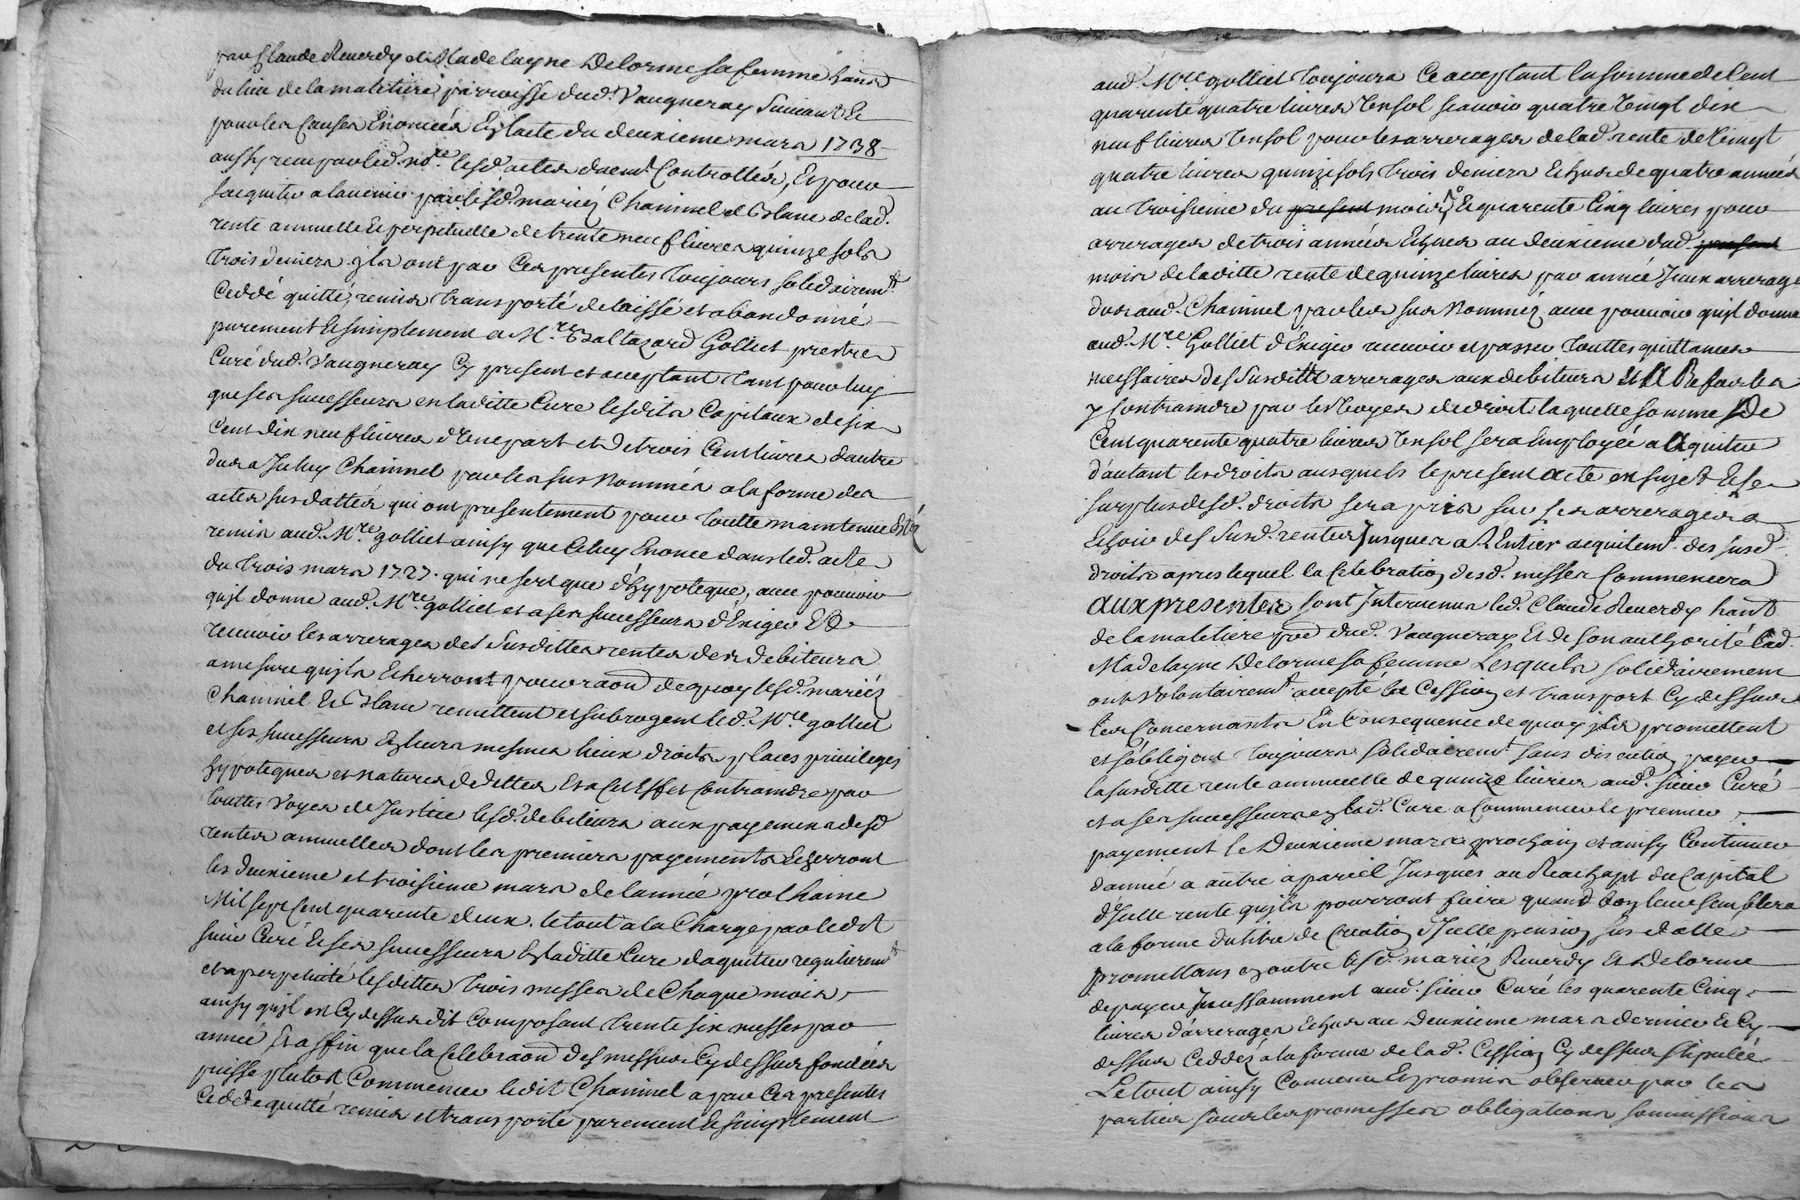 par Claude Reverdy et Madelayne Delorme sa femme hants
du lieu de la maletiere parroisse dud. Vaugneray suivant Et
pour les Causes Enoncées Ez lacte du deuxieme mars 1738
aussy receu par led. nore. lesd. actes duemt. Controllés, Et pour
sacquiter a lavenir par lesd. mariéz Chaninel et Blanc de lad.
rente annuelle Et perpetuelle de trente neuf livres quinze sols
trois deniers ils ont par Ces presentes toujours solidairemt.
Ceddé quitté, remis transporté delaissé et abandonné
purement Et simplement a Mre. Baltazard Golliet prestre
Curé dud. Vaugneray Cy present et acceptant tant pour luy
que ses successeurs en laditte Cure lesdits Capitaux de six
Cent dix neuf livres d'Une part et de trois Cent livres d'autre
dus a Iceluy Chaninel par les sus Nommés a la forme des
actes sus dattés qui ont presentement pour toutte maintenue Esté
remis aud. Mre golliet ainsy que Celuy Enoncé dans led. acte
du trois mars 1727. qui ne sert que d'hypoteque, avec pouvoir
qu'jl donne aud. Mre golliet et a ses successeurs d'Exiger Et
recevoir les arrerages des susdittes rentes des debiteurs
a mesure qu'jls Echerront pour raon. de quoy lesd. mariéz
Chaninel Et Blanc remettent et subrogent led. Mre golliet
et ses successeurs Ez leurs mesmes lieux droits places privileges
hypoteques et natures de dettes Et a Cet Effet Contraindre par
touttes Voyes de Justice lesd. debiteurs aux payemens desd
rentes annuelles dont les premiers payements Echerront
les deuxieme et troisieme mars de lannée prochaine
Mil sept Cent quarente deux. le tout a la Charge par ledit
sieur Curé Et ses successeurs Ez laditte Cure dacquitter regulieremt.
et a perpetuité lesdittes trois messes de Chaque mois
ainsy qu'jl est Cy dessus dit Composant trente six messes par
année Et affin que la Celebraon. des messes Cy dessus fondées
puisse plutot Commencer ledit Chaninel a par Ces presentes
Ceddé quitté remis et transporté purement Et simplement
aud. Mre golliet toujours Ce acceptant la somme de Cent
quarente quatre livres Un sol scavoir quatre Vingt dix
neuf livres Un sol pour les arrerages de lad. rente de Vingt
quatre livres quinze sols trois deniers Echus de quatre années
au troisieme du present mois Et quarente Cinq livres pour
arrerages de trois années Echues au deuxieme dud. present
mois de laditte rente de quinze livres par année Iceux arrerages
dus aud. Chaninel par les sus Nommez avec pouvoir qu'jl donne
aud. Mre Golliet d'Exiger recevoir et passer touttes quittances
necessaires des susditts arrerages aux debiteurs Et A Refus les
y Contraindre par les Voyes de droit laquelle somme De
Cent quarente quatre livres Un sol sera Employée a acquitter
d'autant les droits ausquels le present acte en sujet Et le
surplus desd. droits sera pris sur les arrerages a
Echoir des susd. rentes Jusques a L'Entier acquitemt. des susd.
droits apres lequel la Celebration desd. messes Commencera
Aux presentes sont Intervenus led. Claude Reverdy hant
de la maletiere psse dud. Vaugneray Et de son authorité lad.
Madelayne Delorme sa femme Lesquels solidairement
ont Volontairemt. accepté les Cession et transport Cy dessus
les Concernants En Consequence de quoy jls promettent
et s'obligent toujours solidairemt. sans discution payer
la susditte rente annuelle de quinze livres aud. sieur Curé
et a ses successeurs Ez lad. Cure a Commencer le premier
payement le Deuxieme mars prochain et ainsy Continuer
dannée a autre a pareil Jusques au Reachapt du Capital
d'Icelle rente qu'jls pourront faire quand bon leur semblera
a la forme du titre de Creation d'Icelle pension sus datté
promettans en outre lesd. mariéz Reverdy Et Delorme
de payer Incessamment aud. sieur Curé les quarente Cinq
livres d'arrerages Echus au Deuxieme mars dernier Et Cy
dessus Ceddez a la forme de lad. Cession Cy dessus stipulée
Le tout ainsy Convenu Et promis observer par les
parties sous les promesses obligations soumissions